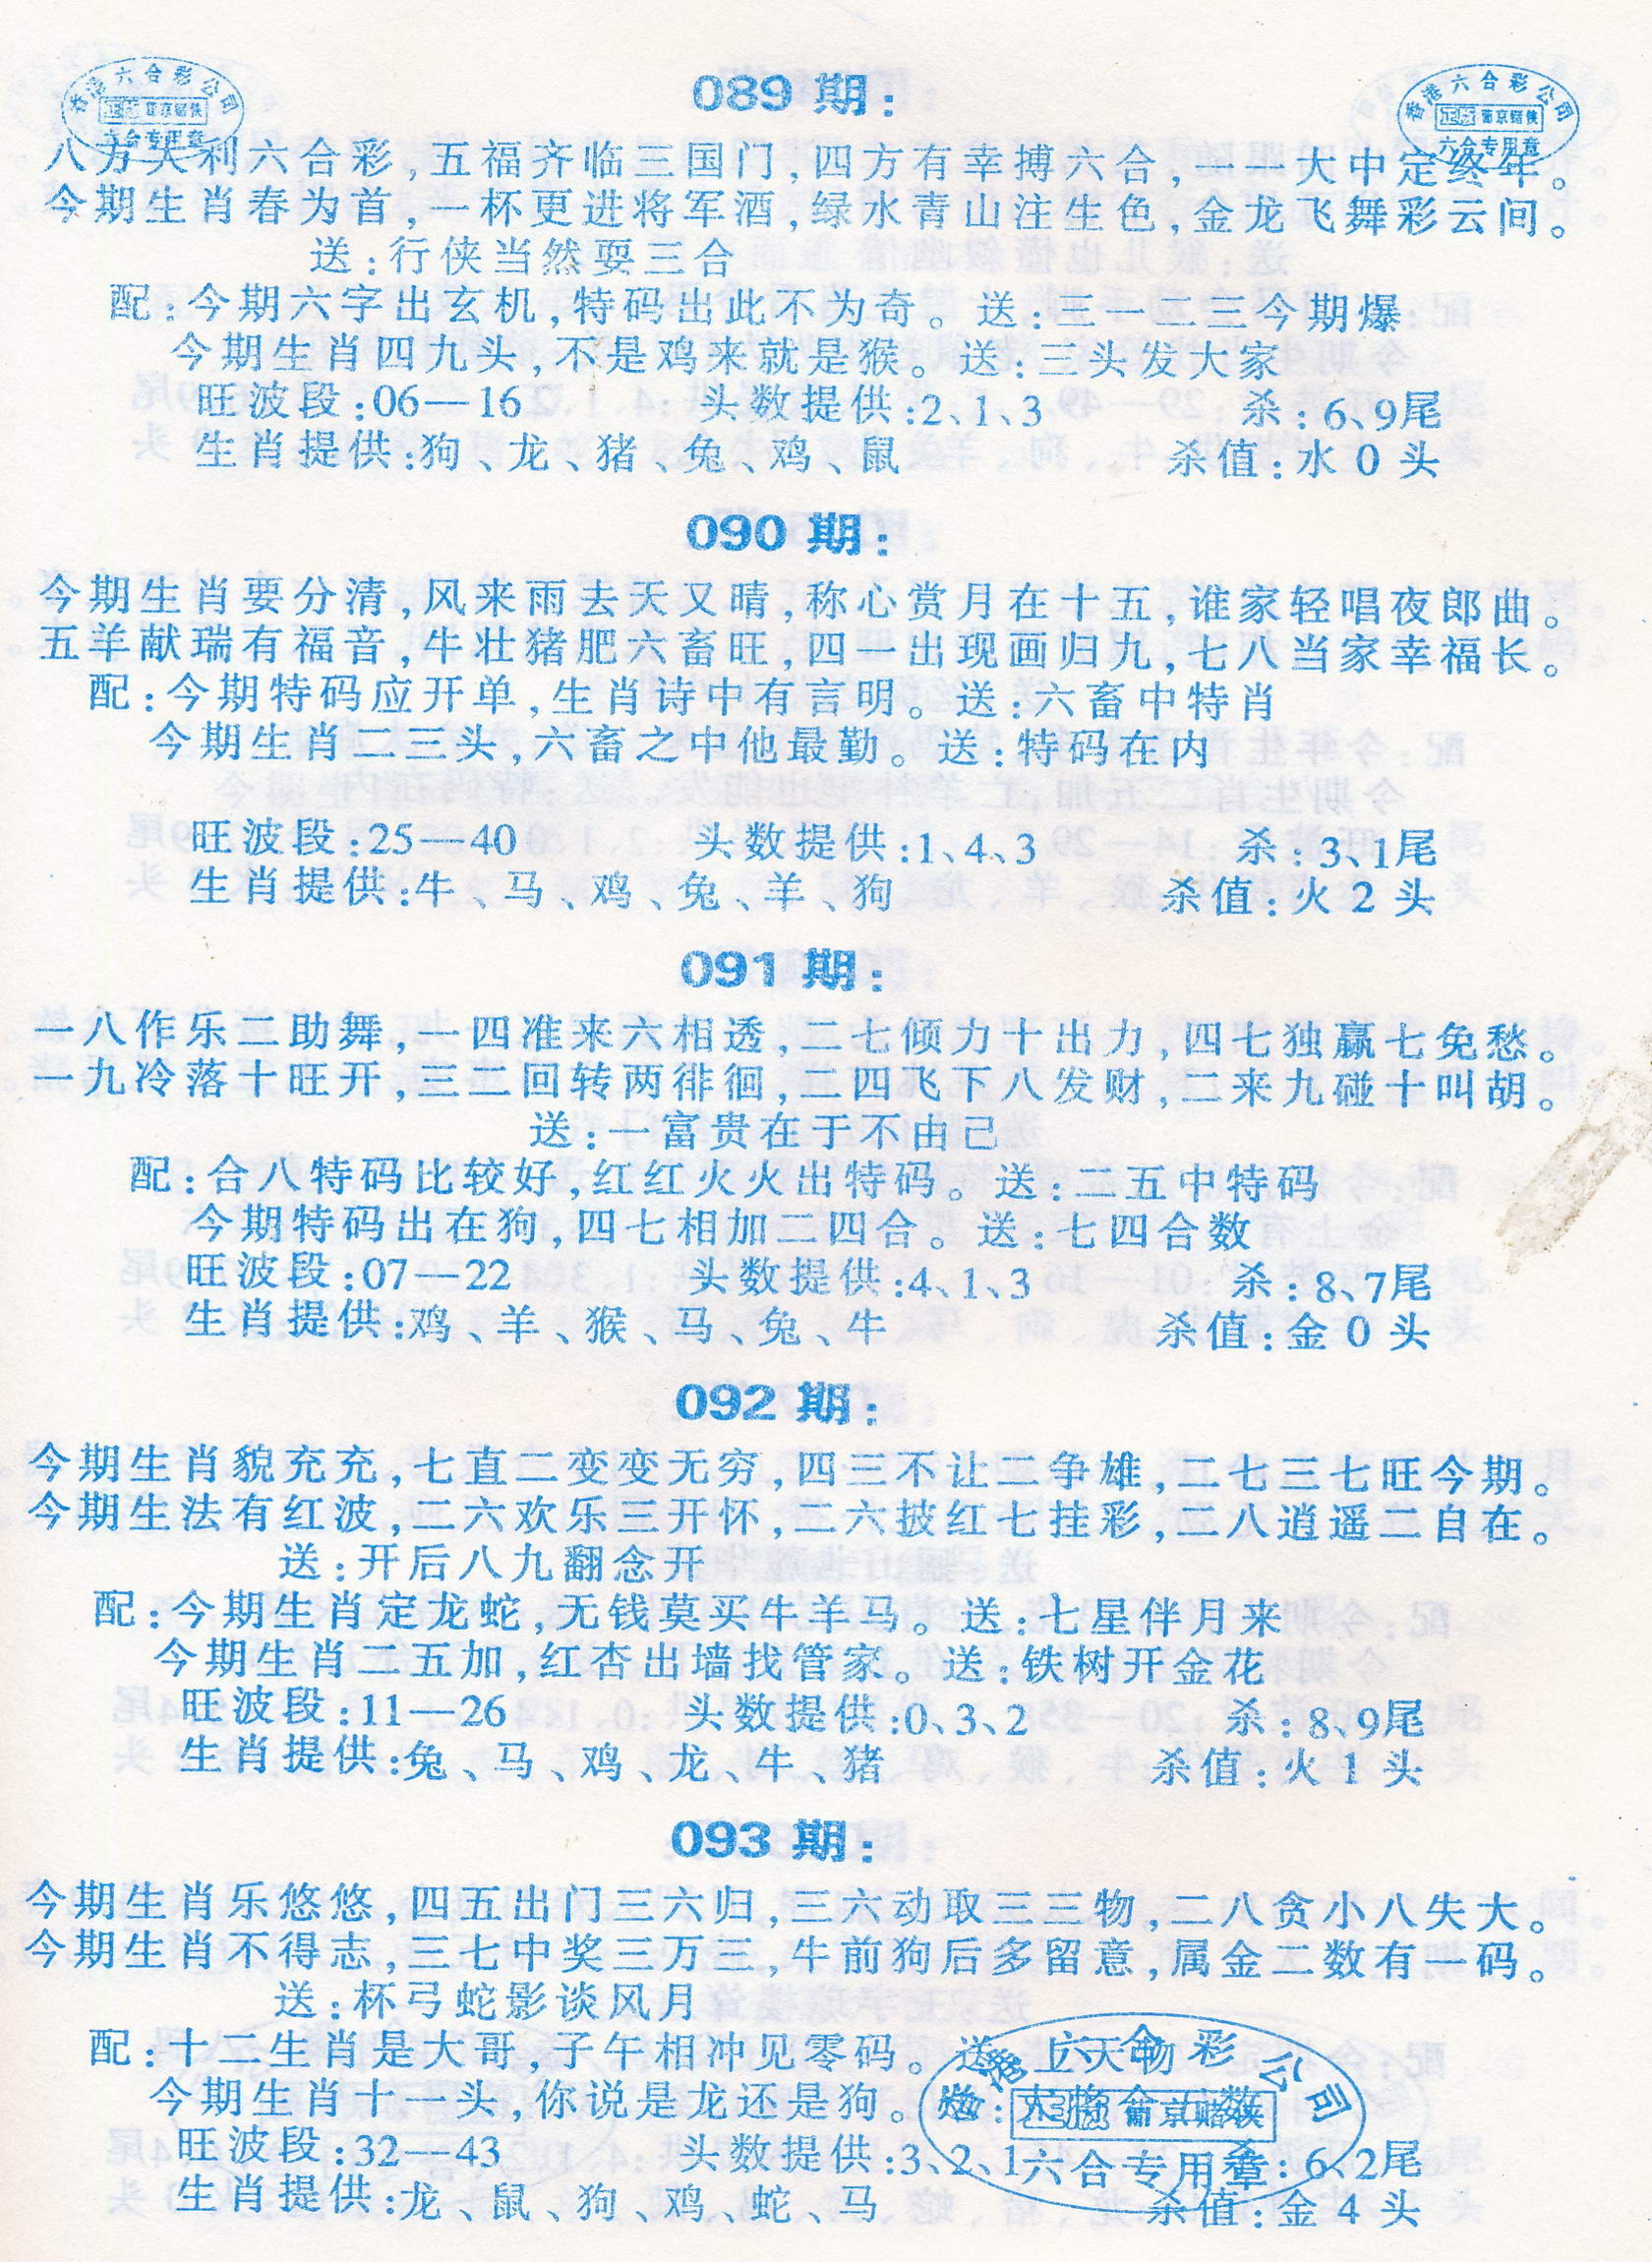 香港六合彩公司
正版 葡京赌侠
六合专用章
香港六合彩公司
正版 葡京赌侠
六合专用章
089 期:
八方大利六合彩,五福齐临三国门,四方有幸搏六合,一一大中定终年。
今期生肖春为首,一杯更进将军酒,绿水青山注生色,金龙飞舞彩云间。
送:行侠当然耍三合
配:今期六字出玄机,特码出此不为奇。送:三一二三今期爆
今期生肖四九头,不是鸡来就是猴。送:三头发大家
旺波段:06—16 头数提供:2、1、3 杀:6、9尾
生肖提供:狗、龙、猪、兔、鸡、鼠 杀值:水 0 头
090 期:
今期生肖要分清,风来雨去天又晴,称心赏月在十五,谁家轻唱夜郎曲。
五羊献瑞有福音,牛壮猪肥六畜旺,四一出现画归九,七八当家幸福长。
配:今期特码应开单,生肖诗中有言明。送:六畜中特肖
今期生肖二三头,六畜之中他最勤。送:特码在内
旺波段:25—40 头数提供:1、4、3 杀:3、1尾
生肖提供:牛、马、鸡、兔、羊、狗 杀值:火 2 头
091 期:
一八作乐二助舞,一四准来六相透,二七倾力十出力,四七独赢七免愁。
一九冷落十旺开,三二回转两徘徊,二四飞下八发财,二来九碰十叫胡。
送:一富贵在于不由己
配:合八特码比较好,红红火火出特码。送:二五中特码
今期特码出在狗,四七相加二四合。送:七四合数
旺波段:07—22 头数提供:4、1、3 杀:8、7尾
生肖提供:鸡、羊、猴、马、兔、牛 杀值:金 0 头
092 期:
今期生肖貌充充,七直二变变无穷,四三不让二争雄,二七三七旺今期。
今期生法有红波,二六欢乐三开怀,二六披红七挂彩,二八逍遥二自在。
送:开后八九翻念开
配:今期生肖定龙蛇,无钱莫买牛羊马。送:七星伴月来
今期生肖二五加,红杏出墙找管家。送:铁树开金花
旺波段:11—26 头数提供:0、3、2 杀:8、9尾
生肖提供:兔、马、鸡、龙、牛、猪 杀值:火 1 头
093 期:
今期生肖乐悠悠,四五出门三六归,三六动取三三物,二八贪小八失大。
今期生肖不得志,三七中奖三万三,牛前狗后多留意,属金二数有一码。
送:杯弓蛇影谈风月
配:十二生肖是大哥,子午相冲见零码。送:上天物
今期生肖十一头,你说是龙还是狗。送:
旺波段:32—43 头数提供:3、2、1 杀:6、2尾
生肖提供:龙、鼠、狗、鸡、蛇、马 杀值:金 4 头
香港六合彩公司
正版 葡京赌侠
六合专用章